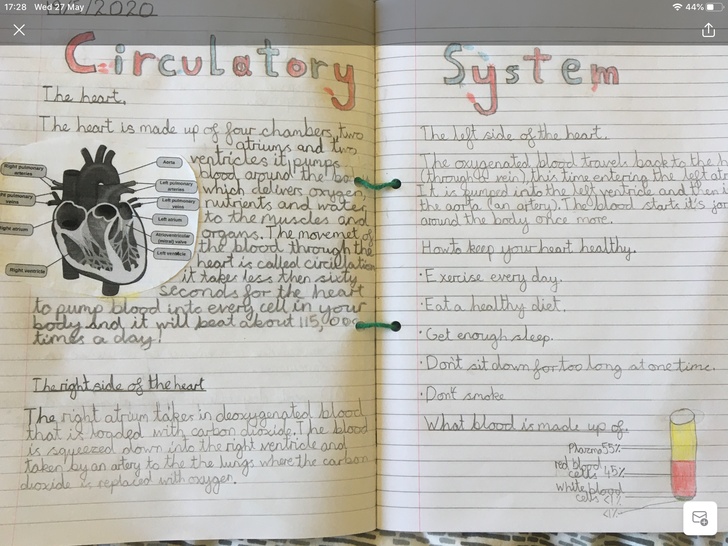 17:28 Wed 27 May
44%
/5/2020
Circulatory System
The heart.
The heart is made up of four chambers, two
atriums and two
ventricles it pumps
blood around the bo
which delivers oxygen
nutrients and water
to the muscles and
organs. The movemet of
the blood through the
heart is called circulation
it takes less then sixty
seconds for the heart
to pump blood into every cell in your
body and it will beat about 115,000
times a day!
Right pulmonary arteries
pulmonary veins
Right atrium
Right ventricle
Aorta
Left pulmonary arteries
Left pulmonary veins
Left atrium
Atrioventricular (mitral) valve
Left ventricle
The right side of the heart
The right atrium takes in deoxygenated blood
that is loaded with carbon dioxide. The blood
is squeezed down into the right ventricle and
taken by an artery to the the lungs where the carbon
dioxide is replaced with oxygen.
The left side of the heart.
The oxygenated blood travels back to the h
(through a vein), this time entering the left atr
It is pumped into the left ventricle and then
the aorta (an artery). The blood starts it's jo
around the body once more.
How to keep your heart healthy.
· Exercise every day.
· Eat a healthy diet.
· Get enough sleep.
· Don't sit down for too long at one time.
· Don't smoke
What blood is made up of.
Plazma 55%
red blood
cells 45%
white blood
cells <1%
<1%